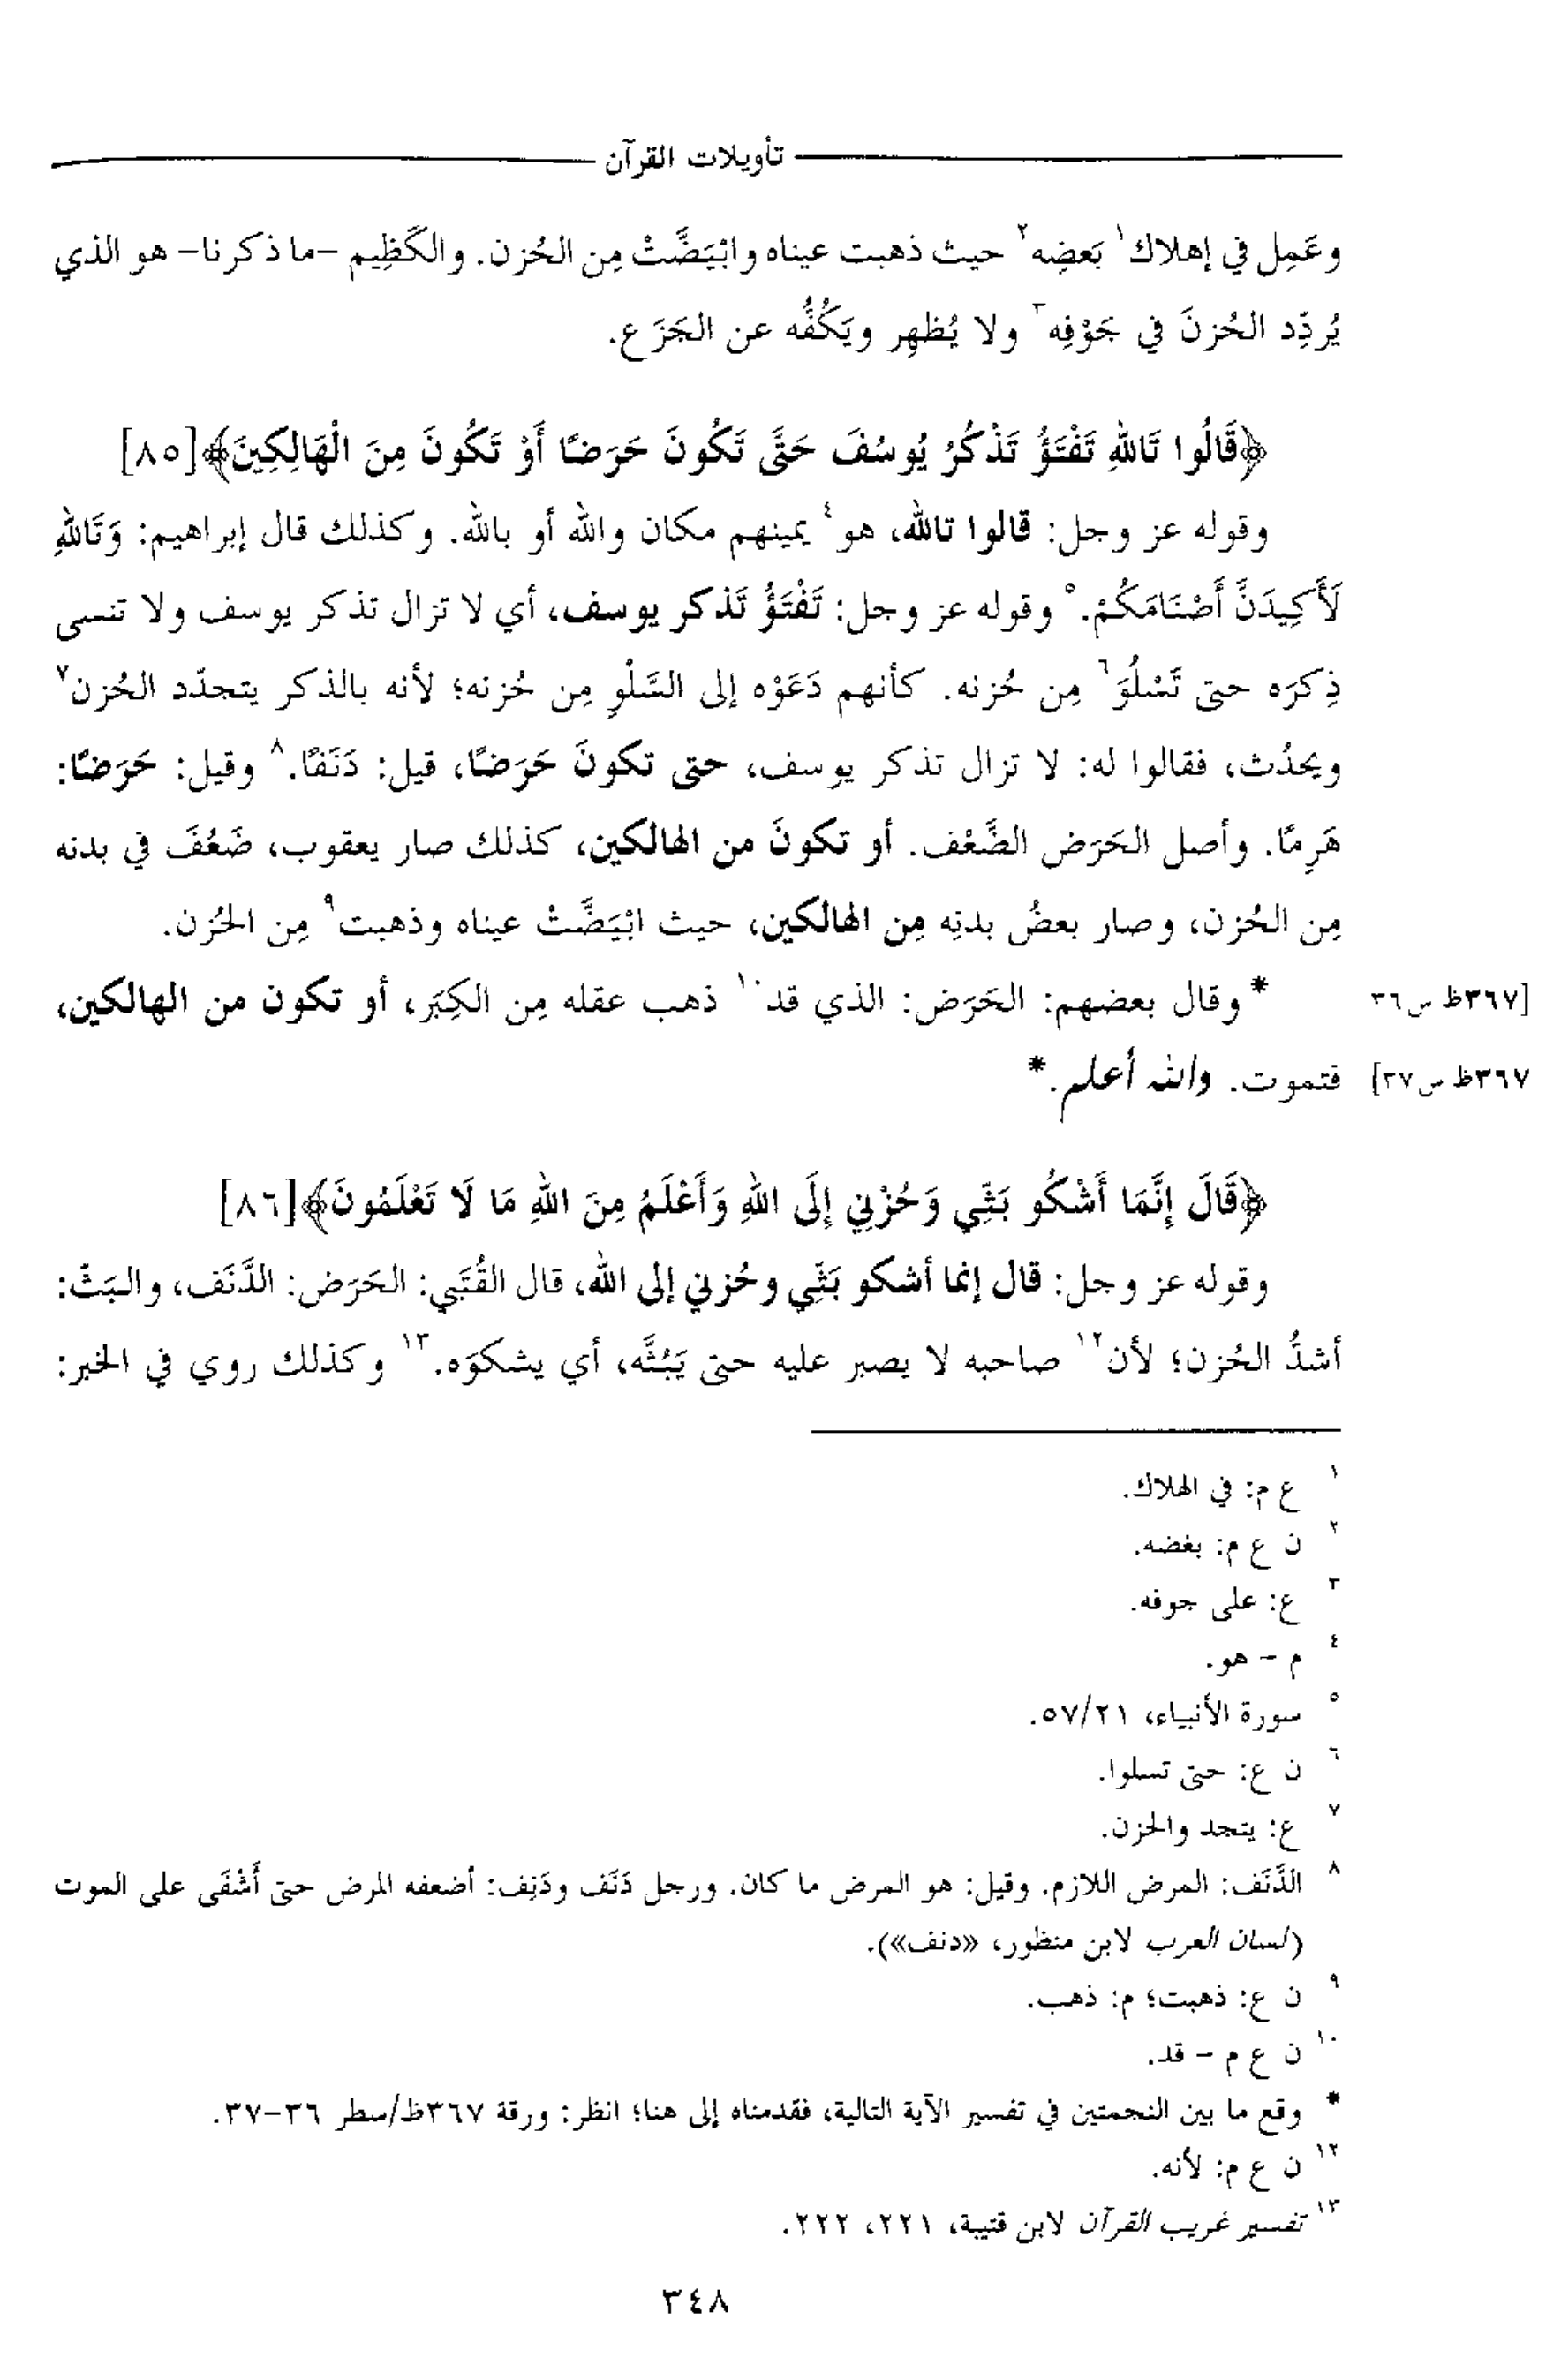 تأويلات القرآن
وعَمِل في إهلاك١ بَعضِه٢ حيث ذهبت عيناه وابْيَضَّتْ مِن الحُزن. والكَظِيم -ما ذكرنا- هو الذي
يُردِّد الحُزنَ في جَوْفِه٣ ولا يُظهِر ويَكُفُّه عن الجَزَع.
﴿قَالُوا تَاللهِ تَفْتَؤُ تَذْكُرُ يُوسُفَ حَتَّى تَكُونَ حَرَضًا أَوْ تَكُونَ مِنَ الْهَالِكِينَ﴾[٨٥]
وقوله عز وجل: قالوا تالله، هو٤ يمينهم مكان والله أو بالله. وكذلك قال إبراهيم: وَتَاللهِ
لَأَكِيدَنَّ أَصْنَامَكُمْ.٥ وقوله عز وجل: تَفْتَؤُ تَذكر يوسف، أي لا تزال تذكر يوسف ولا تنسى
ذِكرَه حتى تَسْلُوَ٦ مِن حُزنه. كأنهم دَعَوْه إلى السَّلْوِ مِن حُزنه؛ لأنه بالذكر يتجدّد الحُزن٧
ويحدُث، فقالوا له: لا تزال تذكر يوسف، حتى تكونَ حَرَضًا، قيل: دَنَفًا.٨ وقيل: حَرَضًا:
هَرِمًا. وأصل الحَرَض الضَّعْف. أو تكونَ من الهالكين، كذلك صار يعقوب، ضَعُفَ في بدنه
مِن الحُزن، وصار بعضُ بدنِه مِن الهالكين، حيث ابْيَضَّتْ عيناه وذهبت٩ مِن الحُزن.
* وقال بعضهم: الحَرَض: الذي قد١٠ ذهب عقله مِن الكِبَر، أو تكون من الهالكين، [٣٦٧ظ س٣٦
فتموت. والله أعلم.* ٣٦٧ظ س٣٧]
﴿قَالَ إِنَّمَا أَشْكُو بَثِّي وَحُزْنِي إِلَى اللهِ وَأَعْلَمُ مِنَ اللهِ مَا لَا تَعْلَمُونَ﴾[٨٦]
وقوله عز وجل: قال إنما أشكو بَثِّي وحُزني إلى الله، قال القُتَبي: الحَرَض: الدَّنَف، والبَثّ:
أشدُّ الحُزن؛ لأن١٢ صاحبه لا يصبر عليه حتى يَبُثَّه، أي يشكوَه.١٣ وكذلك روي في الخبر:
١ ع م: في الهلاك.
٢ ن ع م: بغضه.
٣ ع: على جوفه.
٤ م - هو.
٥ سورة الأنبياء، ٥٧/٢١.
٦ ن ع: حتى تسلوا.
٧ ع: يتجد والحزن.
٨ الدَّنَف: المرض اللازم. وقيل: هو المرض ما كان. ورجل دَنَف ودَنِف: أضعفه المرض حتى أَشْفَى على الموت
(لسان العرب لابن منظور، «دنف»).
٩ ن ع: ذهبت؛ م: ذهب.
١٠ ن ع م - قد.
* وقع ما بين النجمتين في تفسير الآية التالية، فقدمناه إلى هنا؛ انظر: ورقة ٣٦٧ظ/سطر ٣٦-٣٧.
١٢ ن ع م: لأنه.
١٣ تفسير غريب القرآن لابن قتيبة، ٢٢١، ٢٢٢.
٣٤٨